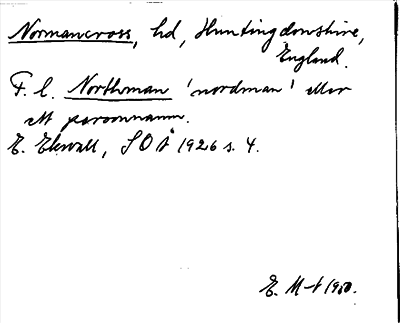 Normancross, hd, Huntingdonshire,
England.
F. l. Northman 'nordman' eller
ett personnamn.
E. Ekwall, SOÅ 1926 s. 4.
E. M-t 1950.